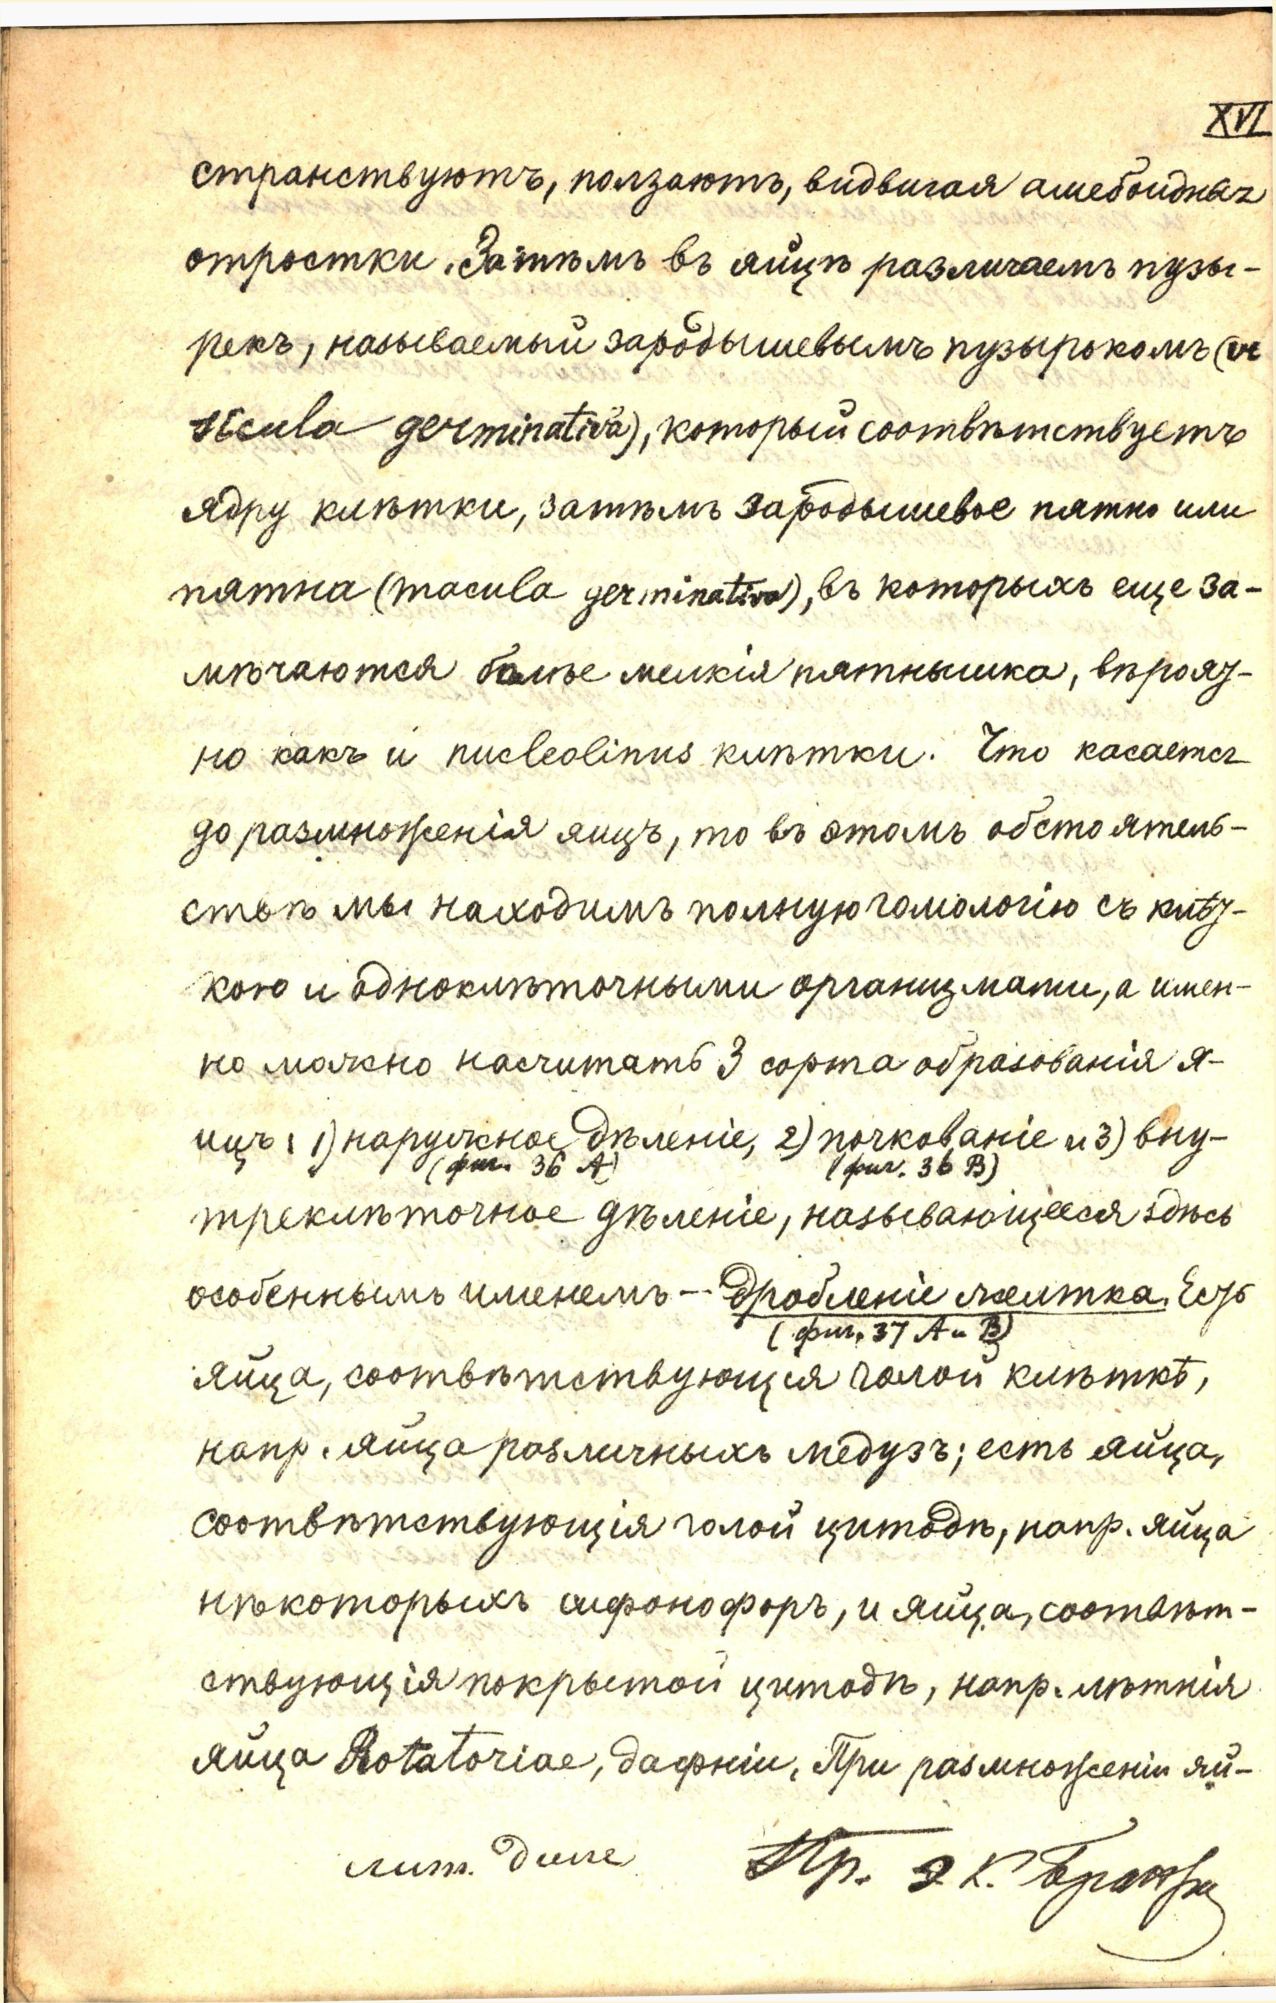 XVI
странствуютъ, ползаютъ, видвигая амебоидныя
отростки. Затѣмъ въ яйцѣ различаемъ пузы-
рекъ, называемый зародышевымъ пузырькомъ (ve
sicula germinativa), который соотвѣтствуетъ
ядру клѣтки, затѣмъ зародышевое пятно или
пятна (macula germinativa), въ которыхъ еще за-
мѣчаются болѣе мелкія пятнышка, вѣроят-
но какъ и nucleolinus клѣтки. Что касается
до размноженія яицъ, то въ этомъ обстоятель-
ствѣ мы находимъ полную гомологію съ клѣт-
кою и одноклѣточными организмами, а имен-
но можно насчитать 3 сорта образованія я-
ицъ: 1) наружное дѣленіе, 2) почкованіе и 3) вну-
(фиг. 36 A) (фиг. 36 B)
треклѣточное дѣленіе, называющееся здѣсь
особеннымъ именемъ — дробленіе желтка. Есть
(фиг. 37 A и B)
яйца, соотвѣтствующія голой клѣткѣ,
напр. яйца различныхъ медузъ; есть яйца,
соотвѣтствующія голой цитодѣ, напр. яйца
нѣкоторыхъ сифонофоръ, и яйца, соотвѣт-
ствующія покрытой цитодѣ, напр. лѣтнія
яйца Rotatoriae, дафніи. При размноженіи яй-
лит. Пр. Э К. Брандт